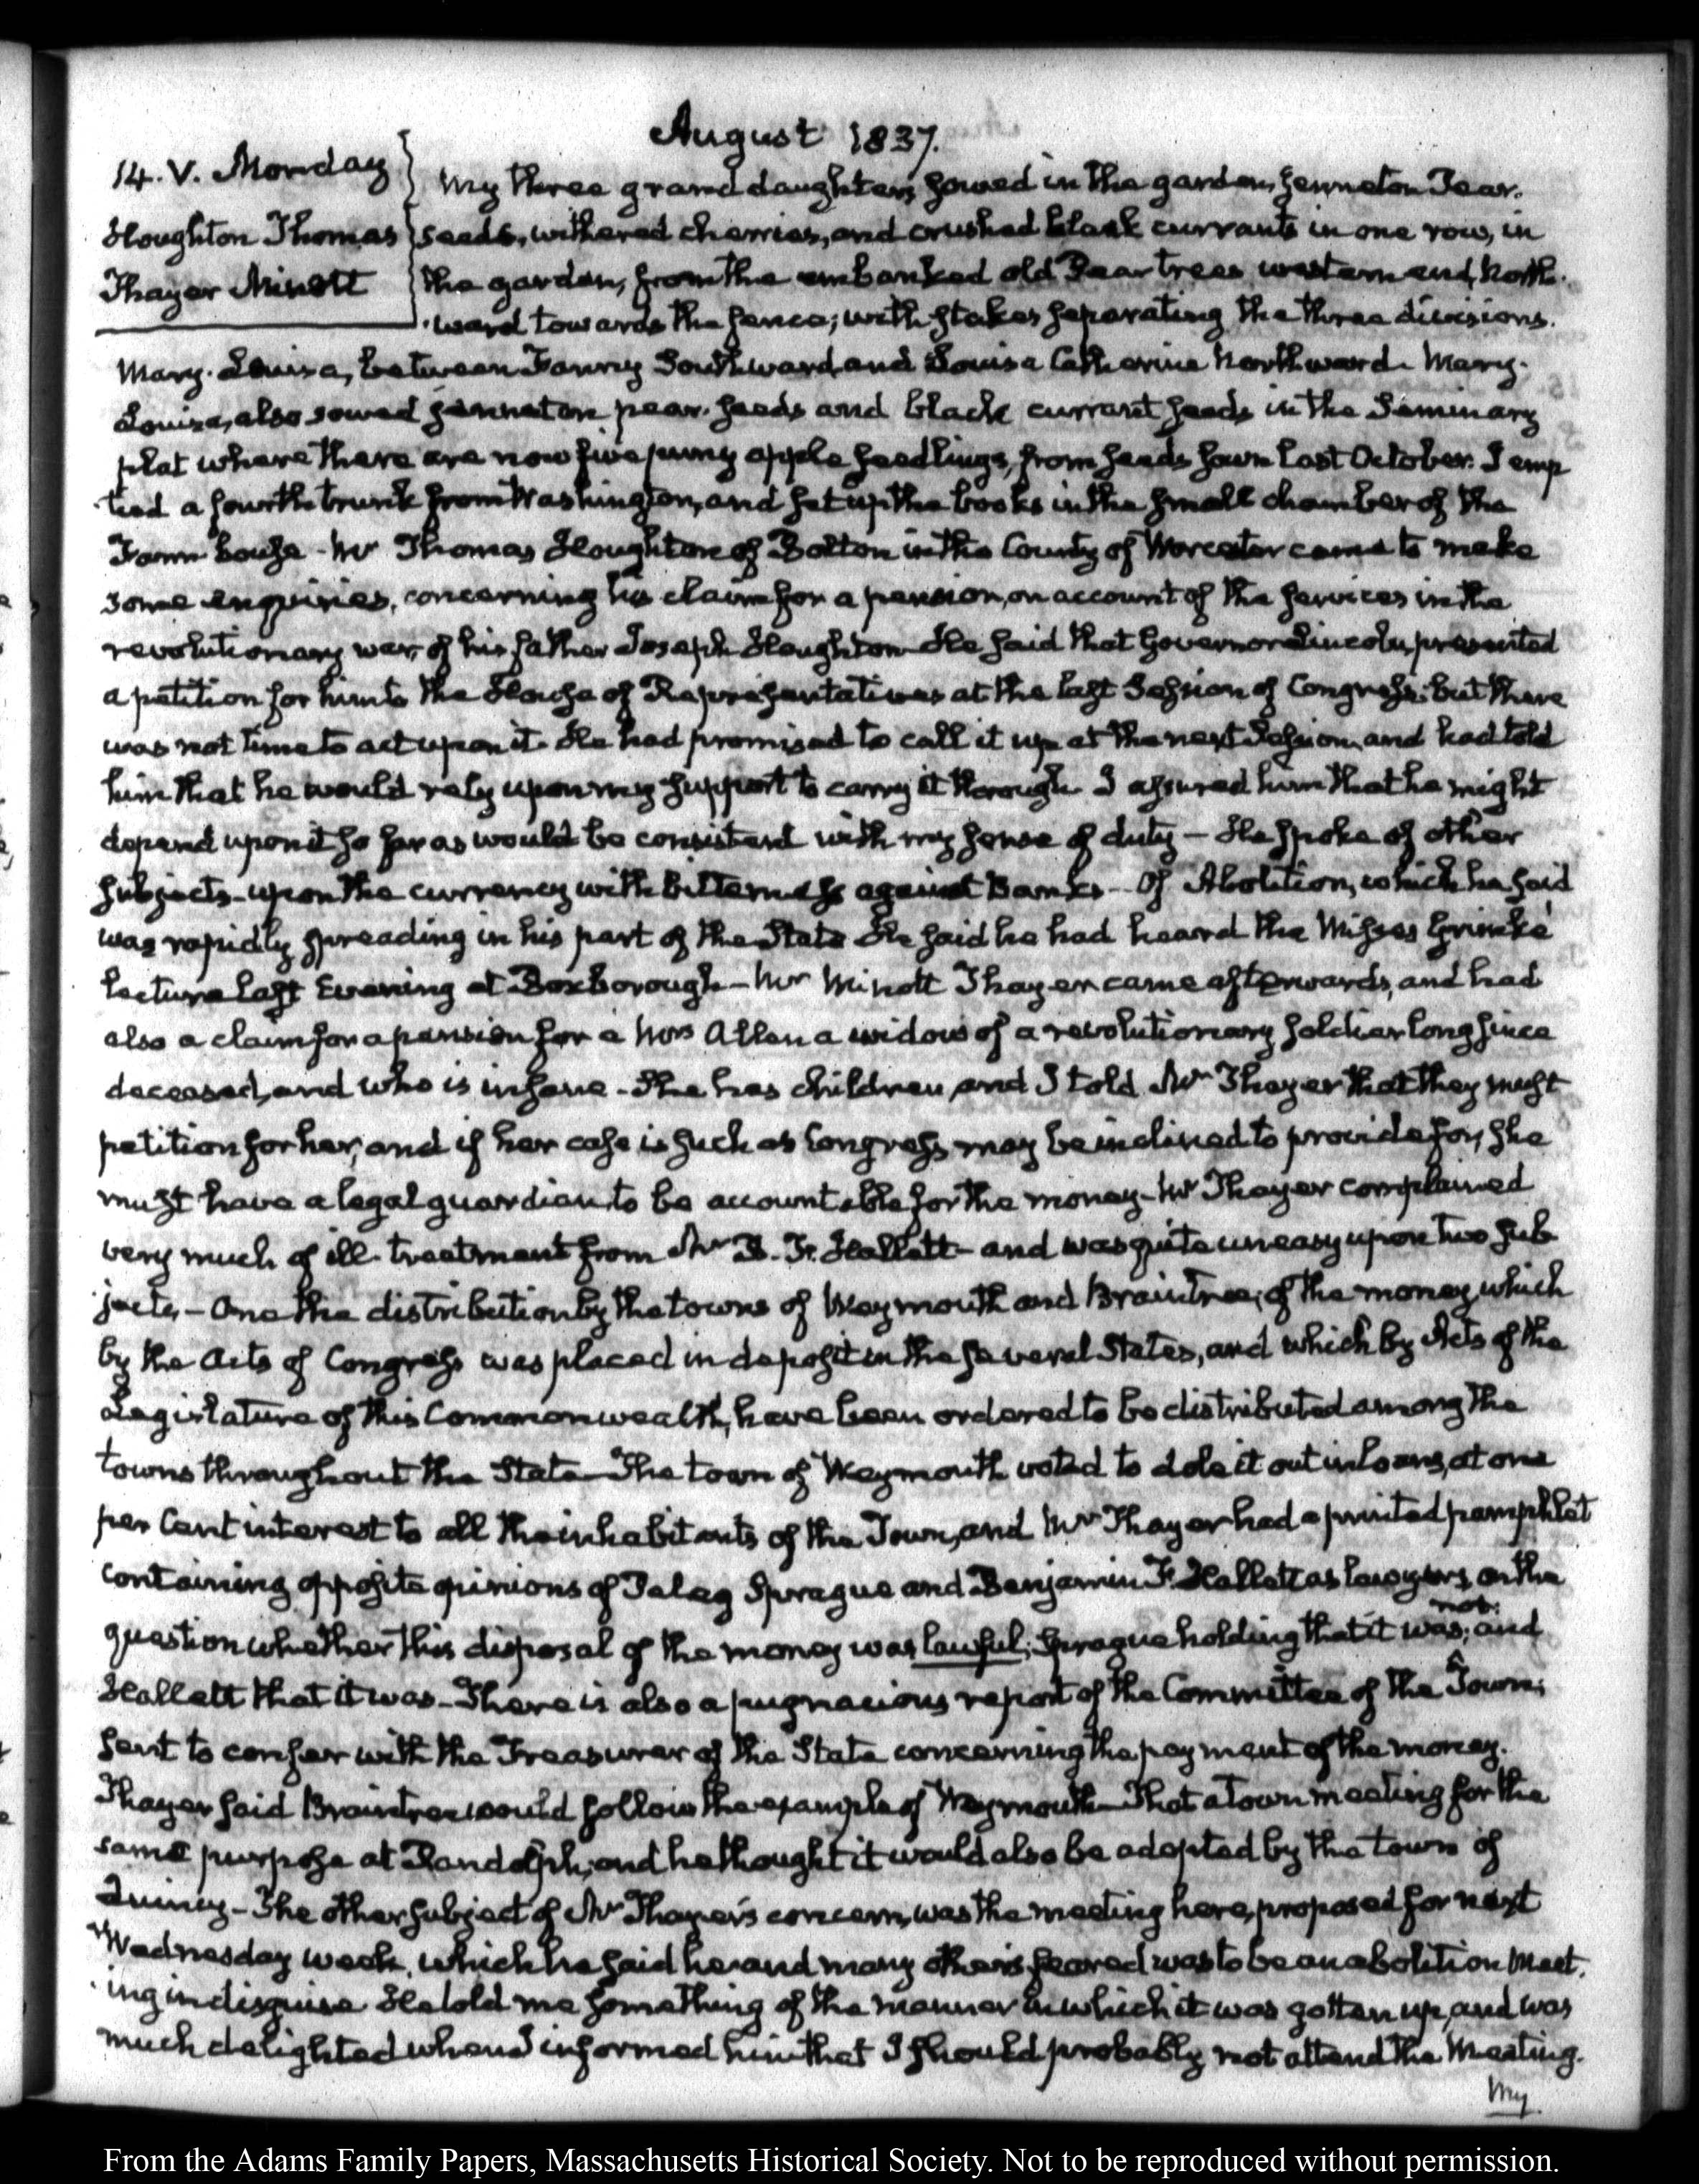 August 1837.
14. V. Monday
Houghton Thomas
Thayer Minott
My three grand daughters sowed in the garden, Jenneton Pear.
seeds, withered cherries, and crushed black currants in one row, in
the garden, from the embanked old Pear trees western end, North.
ward towards the fence; with stakes separating the three divisions.
Mary. Louisa, between Fanny Southward and Louisa Catherine Northward. Mary.
Louisa, also sowed Jenneton pear. seeds and black currant seeds in the Seminary
plat where there are now five puny apple seedlings, from seeds sown last October. I emp
tied a fourth trunk from Washington, and set up the books in the small chamber of the
Farm house - Mr Thomas Houghton of Bolton in the County of Worcester came to make
some enquiries, concerning his claim for a pension, on account of the services in the
revolutionary war, of his father Joseph Houghton. He said that Governor Lincoln, presented
a petition for him to the House of Representatives at the last Session of Congress: but there
was not time to act upon it. He had promised to call it up at the next Session, and had told
him that he would rely upon my support to carry it through. I assured him that he might
depend upon it so far as would be consistent with my sense of duty - He spoke of other
subjects - upon the currency with bitterness against Banks - Of Abolition, which he said
was rapidly spreading in his part of the State He said he had heard the Misses Grimké
lecture last Evening at Boxborough - Mr Minott Thayer came afterwards, and had
also a claim for a pension for a Mrs Allen a widow of a revolutionary soldier long since
deceased, and who is insane - She has children, and I told Mr Thayer that they must
petition for her, and if her case is such as Congress may be inclined to provide for, she
must have a legal guardian to be accountable for the money - Mr Thayer complained
very much of ill. treatment from Mr B. F. Hallett - and was quite uneasy upon two sub
jects - One the distribution by the towns of Weymouth and Braintree, of the money which
by the Acts of Congress was placed in deposit in the several States, and which by Acts of the
Legislature of this Commonwealth, have been ordered to be distributed among the
towns throughout the State - The town of Weymouth voted to dole it out in loans, at one
per Cent interest to all the inhabitants of the Town, and Mr Thayer had a printed pamphlet
containing opposite opinions of Peleg Sprague and Benjamin F. Hallett as lawyers, on the
question whether this disposal of the money was lawful; Sprague holding that it was not; and
Hallett that it was - There is also a pugnacious report of the Committee of the Town;
sent to confer with the Treasurer of the State concerning the payment of the money.
Thayer said Braintree would follow the example of Weymouth - That a town meeting for the
same purpose at Randolph, and he thought it would also be adopted by the town of
Quincy - The other subject of Mr Thayer's concern, was the meeting here, proposed for next
Wednesday week, which he said he and many others feared was to be an abolition Meet.
ing in disguise He told me something of the manner in which it was gotten up, and was
much delighted when I informed him that I should probably not attend the Meeting.
My
From the Adams Family Papers, Massachusetts Historical Society. Not to be reproduced without permission.